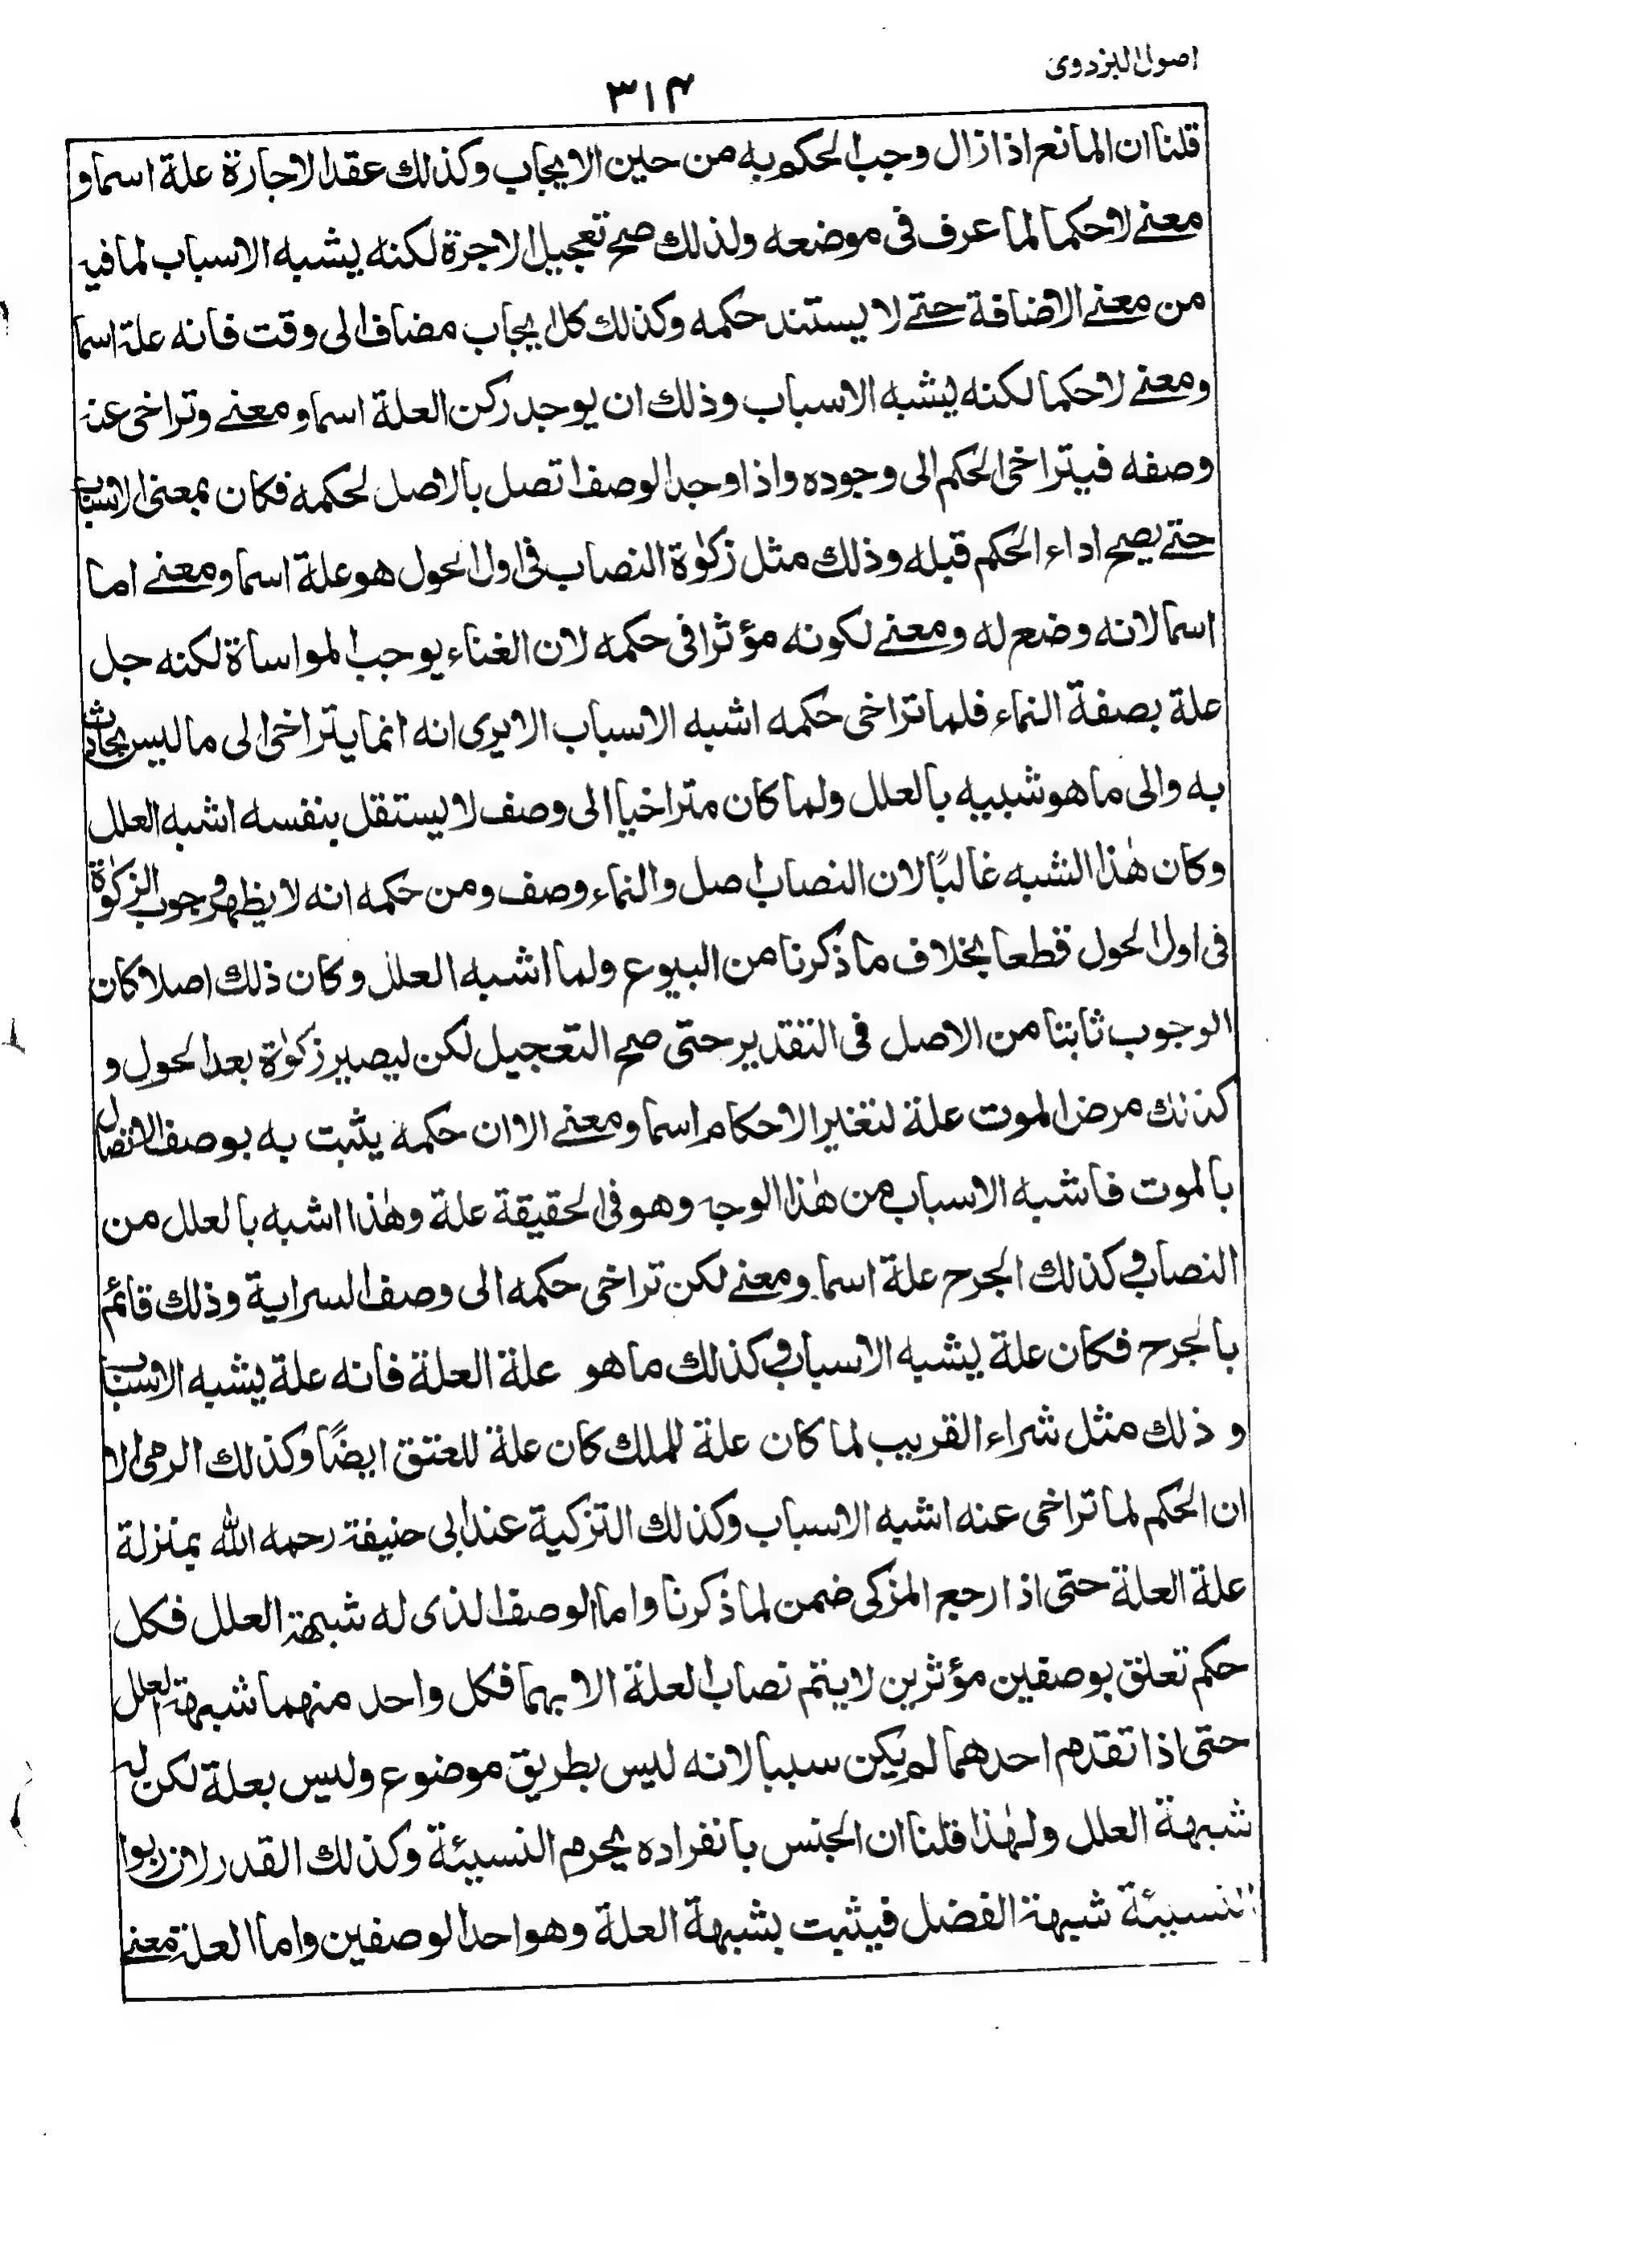 اصول البزدوى
٣١٤
قلنا ان المانع اذا زال وجب الحكم به من حين الايجاب وكذلك عقد الاجارة علة اسما و
معنے لاحكما لما عرف فى موضعه ولذلك صح تعجيل الاجرة لكنه يشبه الاسباب لما فيه
من معنے الاضافة حتے لا يستند حكمه وكذلك كل ايجاب مضاف الى وقت فانه علة اسما
ومعنے لاحكما لكنه يشبه الاسباب وذلك ان يوجد ركن العلة اسما ومعنے وتراخى عنه
وصفه فيتراخى الحكم الى وجوده واذا وجد الوصف اتصل بالاصل لحكمه فكان بمعنى الاسباب
حتے يصح اداء الحكم قبله وذلك مثل زكوٰة النصاب فى اول الحول هو علة اسما ومعنے اما
اسما لانه وضع له ومعنے لكونه مؤثرا فى حكمه لان الغناء يوجب المواساة لكنه جل
علة بصفة النماء فلما تراخى حكمه اشبه الاسباب الا يرى انه انما يتراخى الى ما ليس بحادث
به والى ما هو شبيه بالعلل ولما كان متراخيا الى وصف لا يستقل بنفسه اشبه العلل
وكان هٰذا الشبه غالبًا لان النصاب اصل والنماء وصف ومن حكمه انه لا يظهر وجوب الزكوٰة
فى اول الحول قطعا بخلاف ما ذكرنا من البيوع ولما اشبه العلل وكان ذلك اصلا كان
الوجوب ثابتا من الاصل فى التقدير حتى صح التعجيل لكن ليصير زكوٰة بعد الحول و
كذلك مرض الموت علة لتغير الاحكام اسما ومعنے الا ان حكمه يثبت به بوصف الاتصال
بالموت فاشبه الاسباب من هٰذا الوجه وهو فى الحقيقة علة وهٰذا اشبه بالعلل من
النصاب وكذلك الجرح علة اسما ومعنے لكن تراخى حكمه الى وصف السراية وذلك قائم
بالجرح فكان علة يشبه الاسباب وكذلك ما هو علة العلة فانه علة يشبه الاسباب
وذلك مثل شراء القريب لما كان علة للملك كان علة للعتق ايضًا وكذلك الرمى الا
ان الحكم لما تراخى عنه اشبه الاسباب وكذلك التزكية عند ابى حنيفة رحمه الله بمنزلة
علة العلة حتى اذا رجع المزكى ضمن لما ذكرنا واما الوصف الذى له شبهة العلل فكل
حكم تعلق بوصفين مؤثرين لا يتم نصاب العلة الا بهما فكل واحد منهما شبهة العلل
حتى اذا تقدم احدهما لم يكن سببا لانه ليس بطريق موضوع وليس بعلة لكن له
شبهة العلل ولهٰذا قلنا ان الجنس بانفراده يحرم النسيئة وكذلك القدر لان ربوا
النسيئة شبهة الفضل فيثبت بشبهة العلة وهو احد الوصفين واما العلة معنے